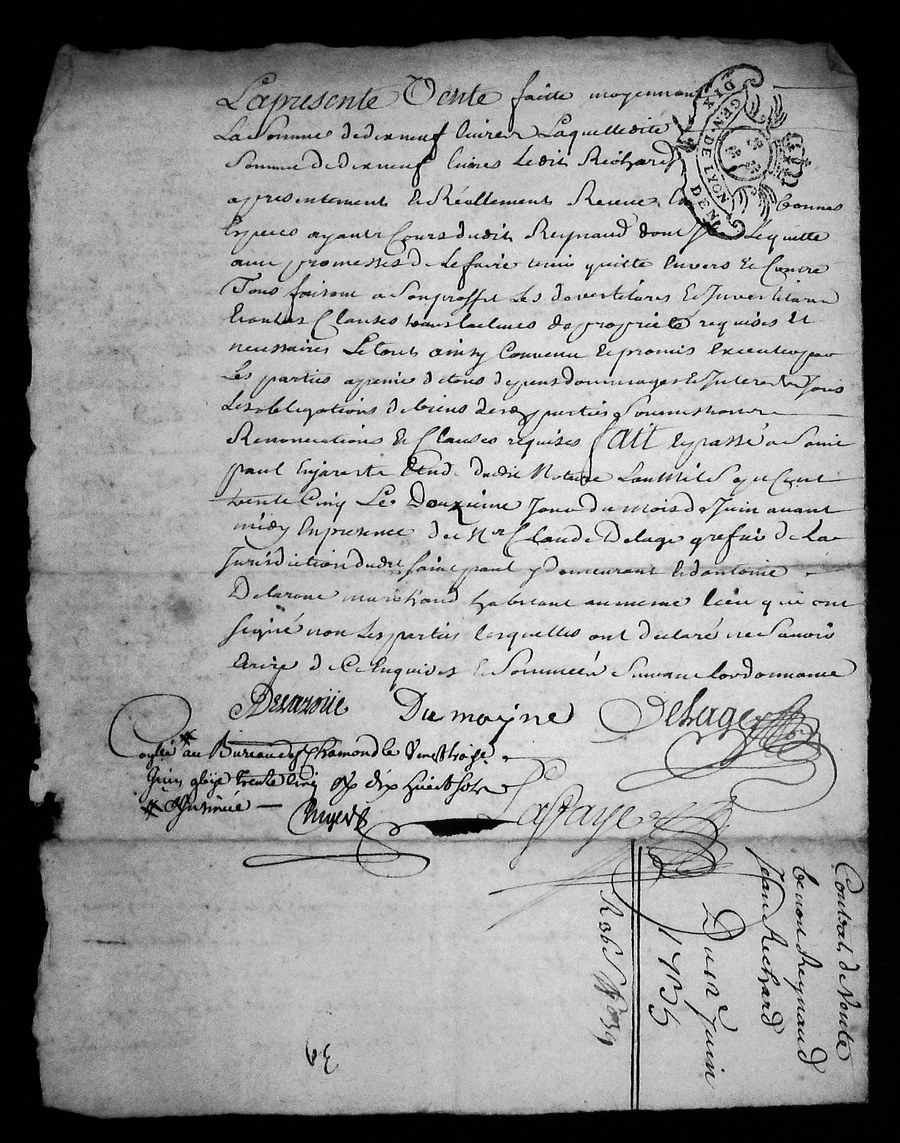 La presente Vente faitte moyennant
La Somme de dixneuf livres Laquelle dite
Somme de dixneuf livres Ledit Richard
a presentement et Réellement Receue bonnes
Especes ayant Cours dudit Reynaud dont Le quitte
avec promesses de le faire tenir quitte Envers et Contre
Tous faisant a Son proffit Les devestitures et Investitures
Et autres Clauses translatives de proprieté requises Et
necessaires Le tout ainsy Convenu et promis Executer par
Les parties a peine de tous depens dommages et Interests Sous
Les obligations de biens desd parties Soumissions
Renonciations et Clauses requises fait et passé a Saint
paul En jarest Etude dudit Notaire Lan Mil Sept Cent
trente Cinq Le Douzieme Jour du mois de Juin avant
midy En presence de Mr Claude Delage grefier de La
Jurisdiction dudit Saint paul y demeurant et dantoine
Delaroue marchand habitant au meme lieu qui ont
Signé non Les parties lesquelles ont declaré ne Savoir
Ecrire de Ce Enquises et Sommées Suivant lordonnance
Delaroüe Dumoyne Delage
au Bureau de St Chamond le Vingt troise
Juin trente Cinq dix huit Sols
DIX DEN
GEN. DE LYON
Contrat de Vente
Reynaud
Jean Richard
Du 12e Juin
1735